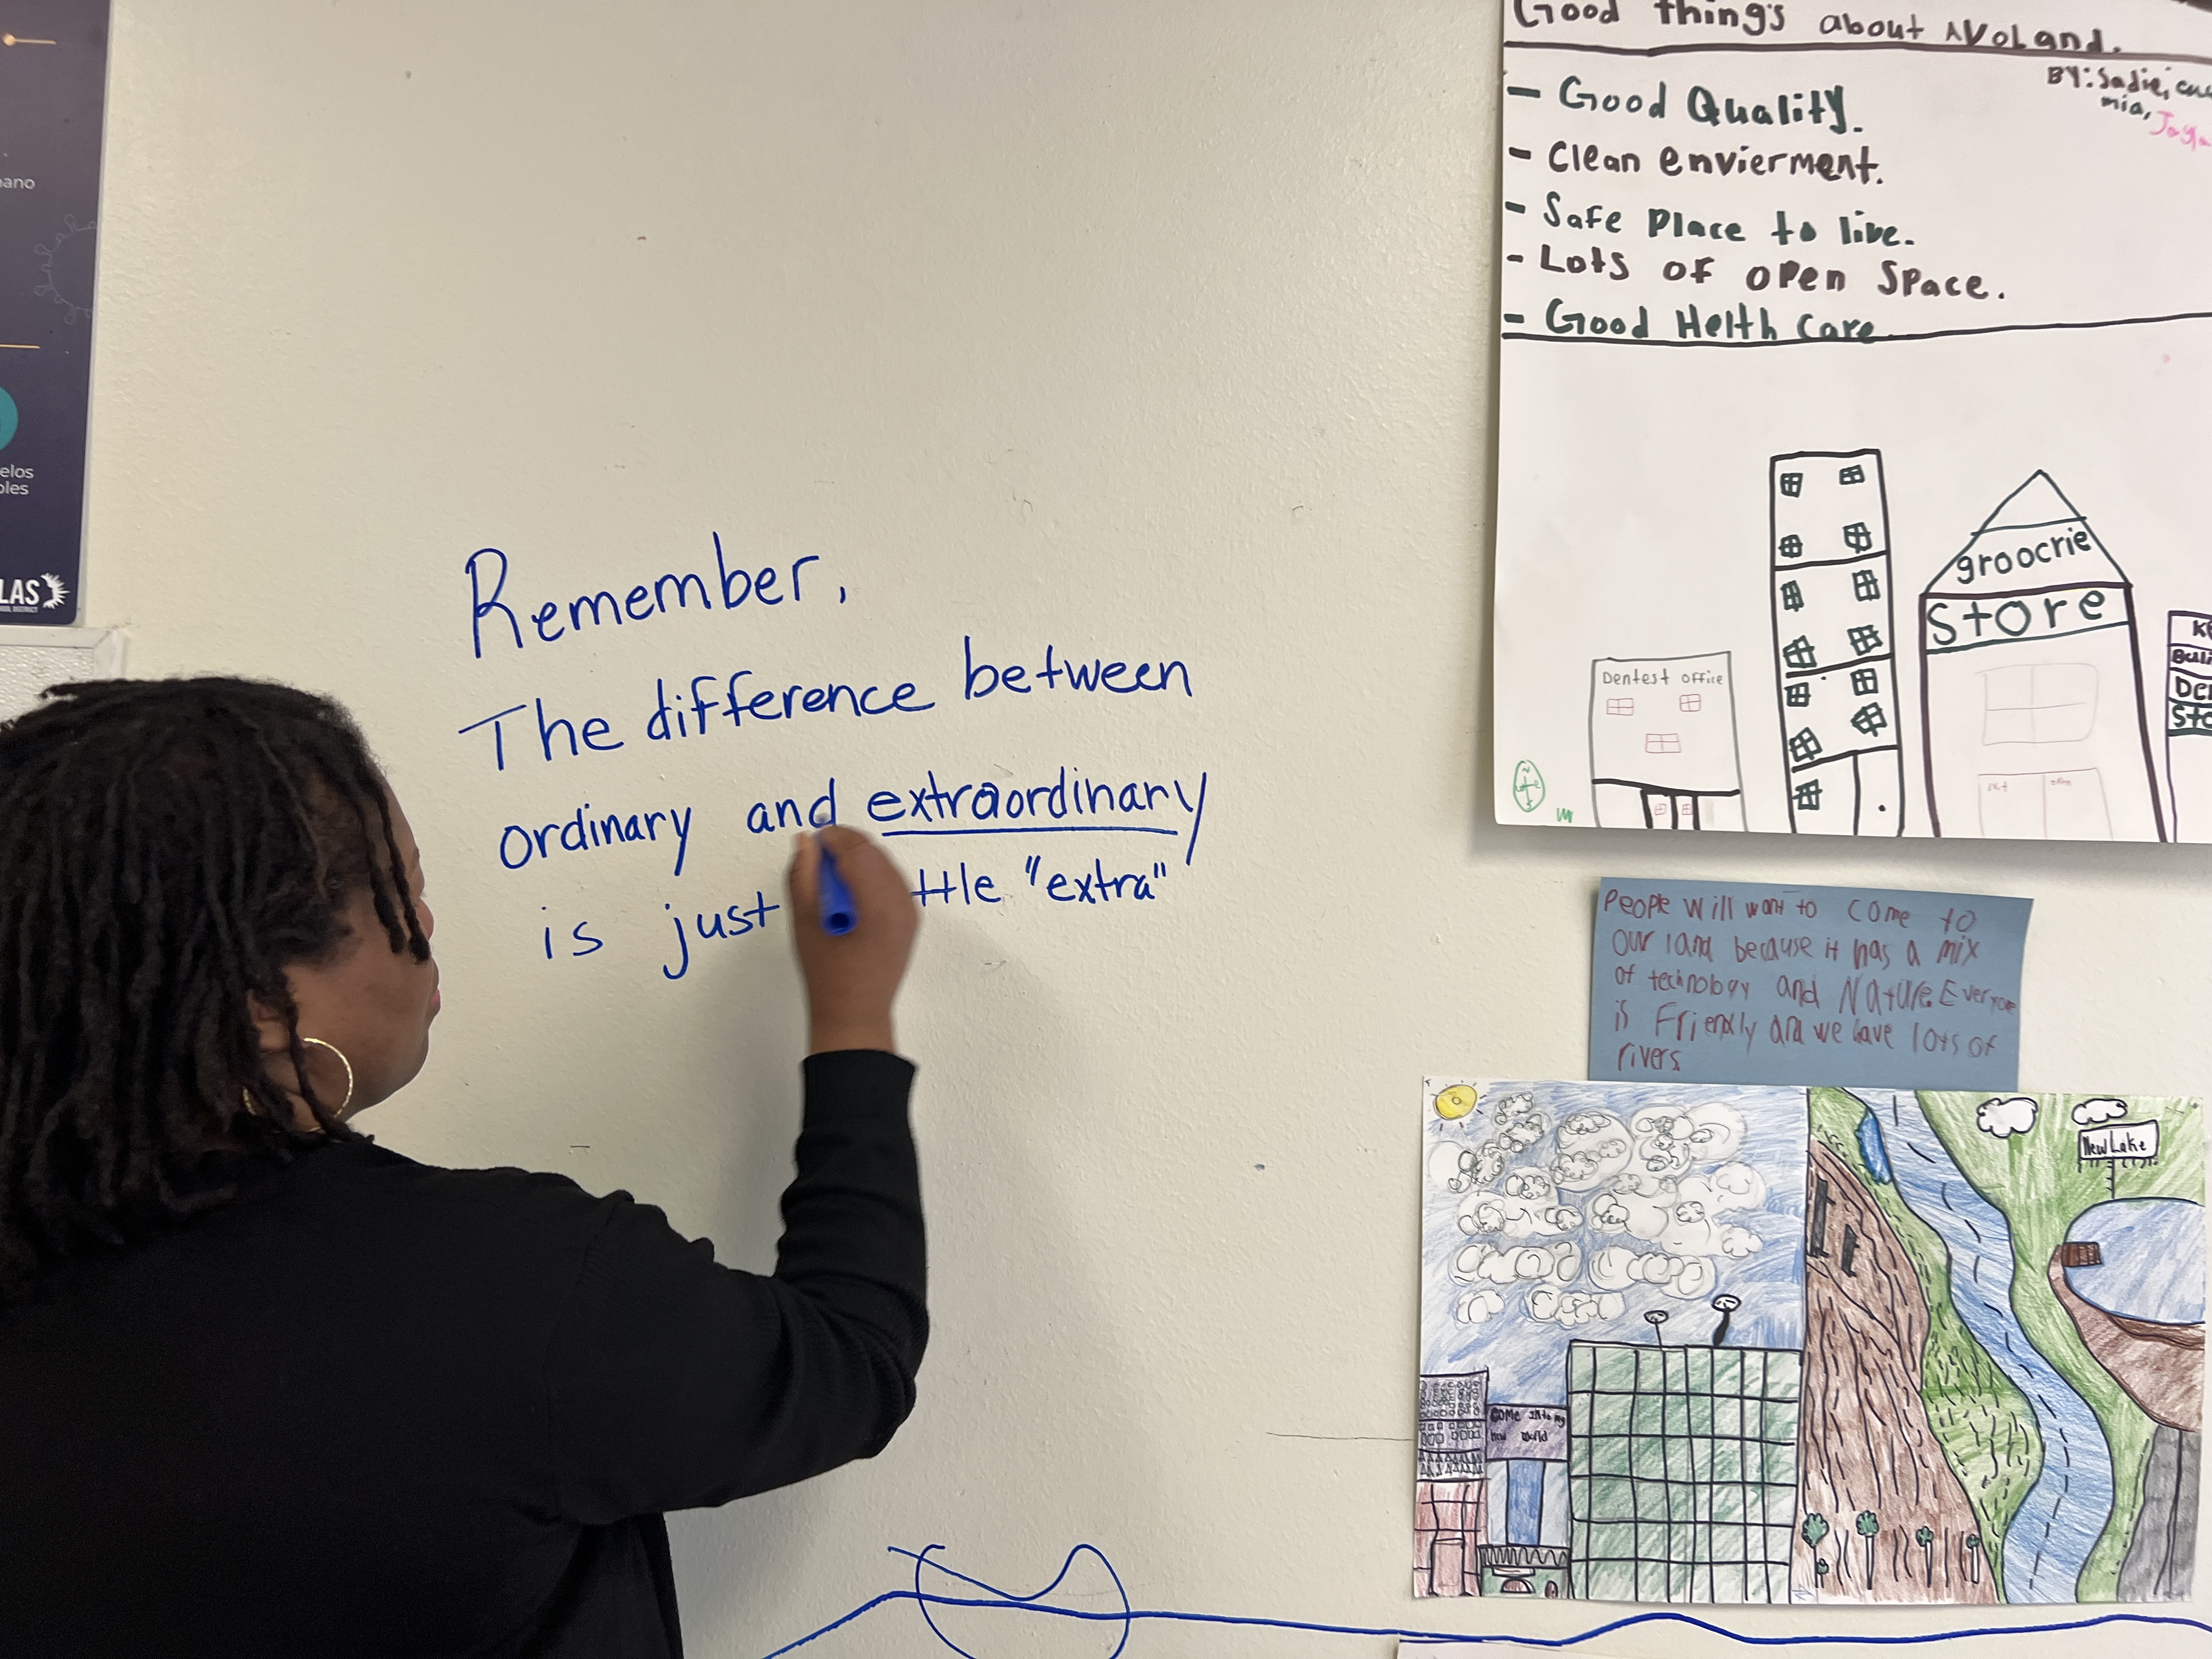 Remember,
The difference between
ordinary and extraordinary
is just ttle "extra"
Good things about NVoLand.
BY: Sadie,
mia,
- Good Quality.
- Clean envierment.
- Safe Place to live.
- Lots of open Space.
- Good Helth Care
Dentest office
groocrie
Store
People will want to come to
our land because it has a mix
of technology and Nature. Everyone
is Friendly and we have lots of
rivers
New Lake
COME into my
new world
elos
LAS